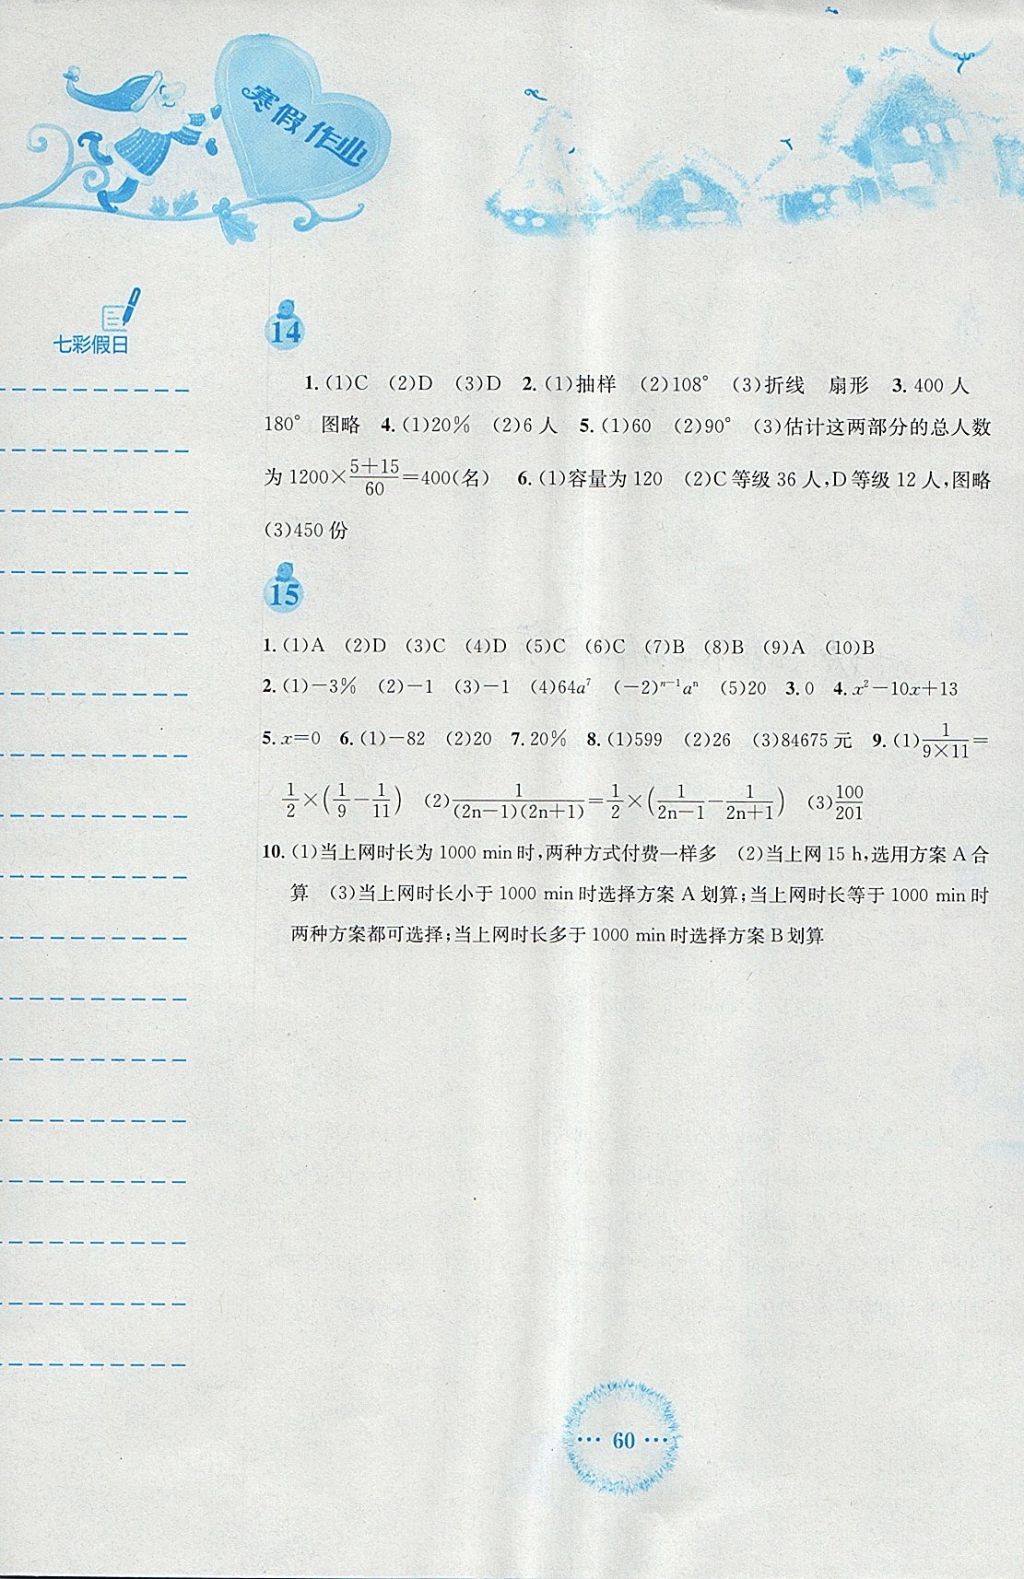 寒假作业
七彩假日
14
1.(1)C (2)D (3)D 2.(1)抽样 (2)108° (3)折线 扇形 3.400人
180° 图略 4.(1)20% (2)6人 5.(1)60 (2)90° (3)估计这两部分的总人数
为1200×\frac{5+15}{60}=400(名) 6.(1)容量为120 (2)C等级36人,D等级12人,图略
(3)450份
15
1.(1)A (2)D (3)C (4)D (5)C (6)C (7)B (8)B (9)A (10)B
2.(1)-3% (2)-1 (3)-1 (4)64a⁷ (-2)ⁿ⁻¹aⁿ (5)20 3.0 4.x²-10x+13
5.x=0 6.(1)-82 (2)20 7.20% 8.(1)599 (2)26 (3)84675元 9.(1)\frac{1}{9×11}=
\frac{1}{2}×(\frac{1}{9}-\frac{1}{11}) (2)\frac{1}{(2n-1)(2n+1)}=\frac{1}{2}×(\frac{1}{2n-1}-\frac{1}{2n+1}) (3)\frac{100}{201}
10.(1)当上网时长为1000 min时,两种方式付费一样多 (2)当上网15 h,选用方案A合
算 (3)当上网时长小于1000 min时选择方案A划算;当上网时长等于1000 min时
两种方案都可选择;当上网时长多于1000 min时选择方案B划算
··· 60 ···